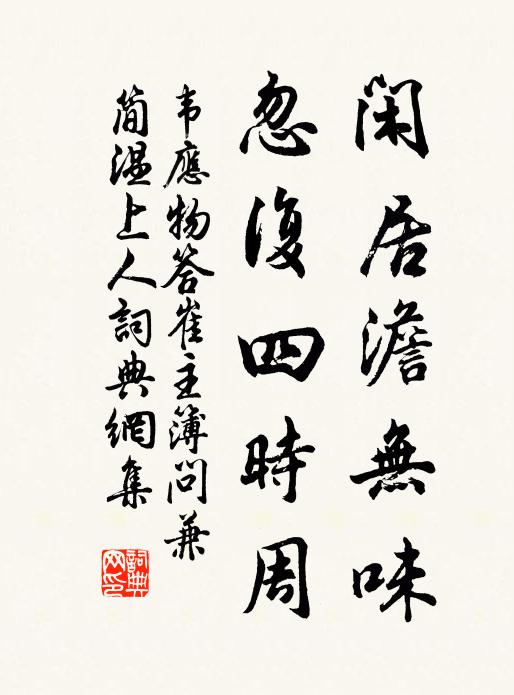 閑居澹無味
忽復四時周
韦應物答崔主簿問兼
简温上人詞典網集
詞典
网印